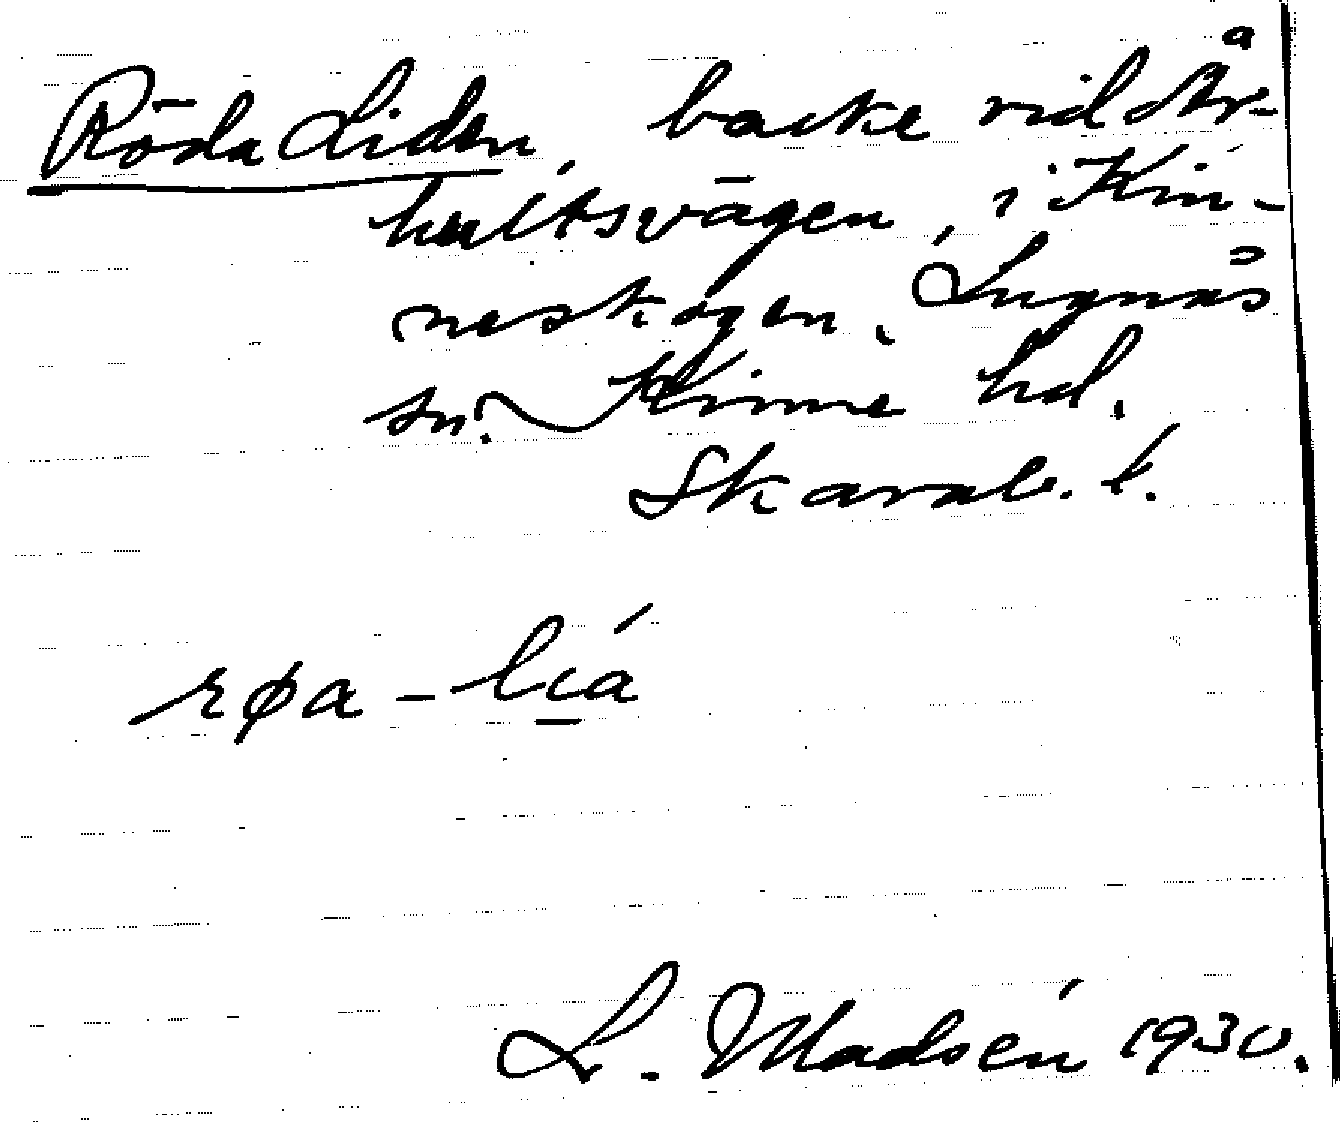 Röda Liden, backe vid År-
hultsvägen, i Kin-
neskogen, Lugnås
sn. Kinne hd.
Skarab. l.
røa - lia
L. Madsén 1930.